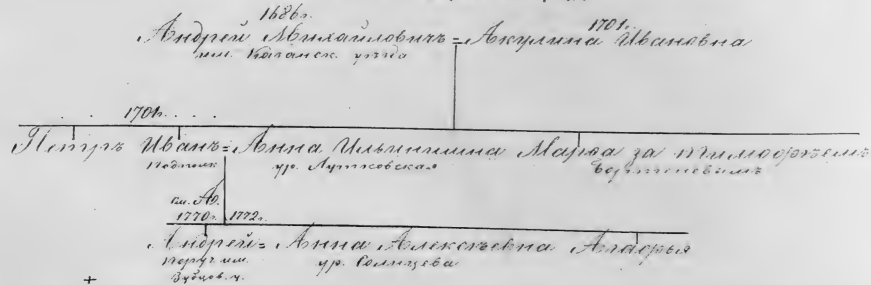 1686г. 1701г.
Андрей Михайловичъ = Акулина Ивановна
им. Казанск. уѣзда
1701г.
Петръ Иванъ = Анна Ильинишна Марѳа за Тимоѳѣемъ
подполк ур. Лутковская
см. АѲ.
1770г. 1772г.
Андрей = Анна Алексѣевна Агаѳья
поруч им. ур. Солнцева
Зубцов. у.
+